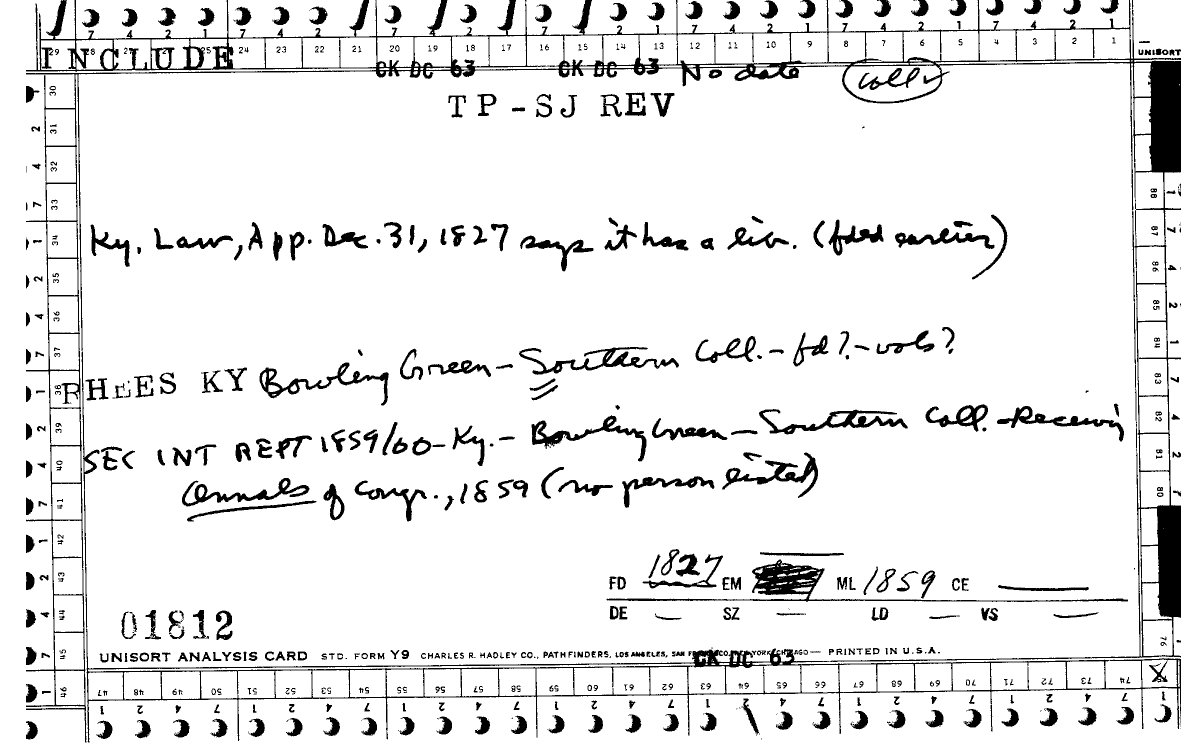 7 4 2 1 7 4 2 1 7 4 2 1 7 4 2 1 7 4 2 1 7 4 2 1 7 4 2 1
29 28 27 26 25 24 23 22 21 20 19 18 17 16 15 14 13 12 11 10 9 8 7 6 5 4 3 2 1 UNISORT
INCLUDE
CK DC 63 CK DC 63 No date Coll.
TP-SJ REV
Ky. Law, App. Dec. 31, 1827 says it has a libr. (fded earlier)
RHEES KY Bowling Green - Southern Coll. - fd? - vols?
SEC INT REPT 1859/60 - Ky. - Bowling Green - Southern Coll. - Receiving
Annals of Congr., 1859 (no person listed)
FD 1827 EM ML 1859 CE —
DE — SZ — LD — VS —
01812
UNISORT ANALYSIS CARD STD. FORM Y9 CHARLES R. HADLEY CO., PATHFINDERS, LOS ANGELES, SAN FRANCISCO, NEW YORK, CHICAGO — PRINTED IN U.S.A.
CK DC 63
30 31 32 33 34 35 36 37 38 39 40 41 42 43 44 45 46
47 48 49 50 51 52 53 54 55 56 57 58 59 60 61 62 63 64 65 66 67 68 69 70 71 72 73 74
76 80 81 82 83 84 85 86 87 88